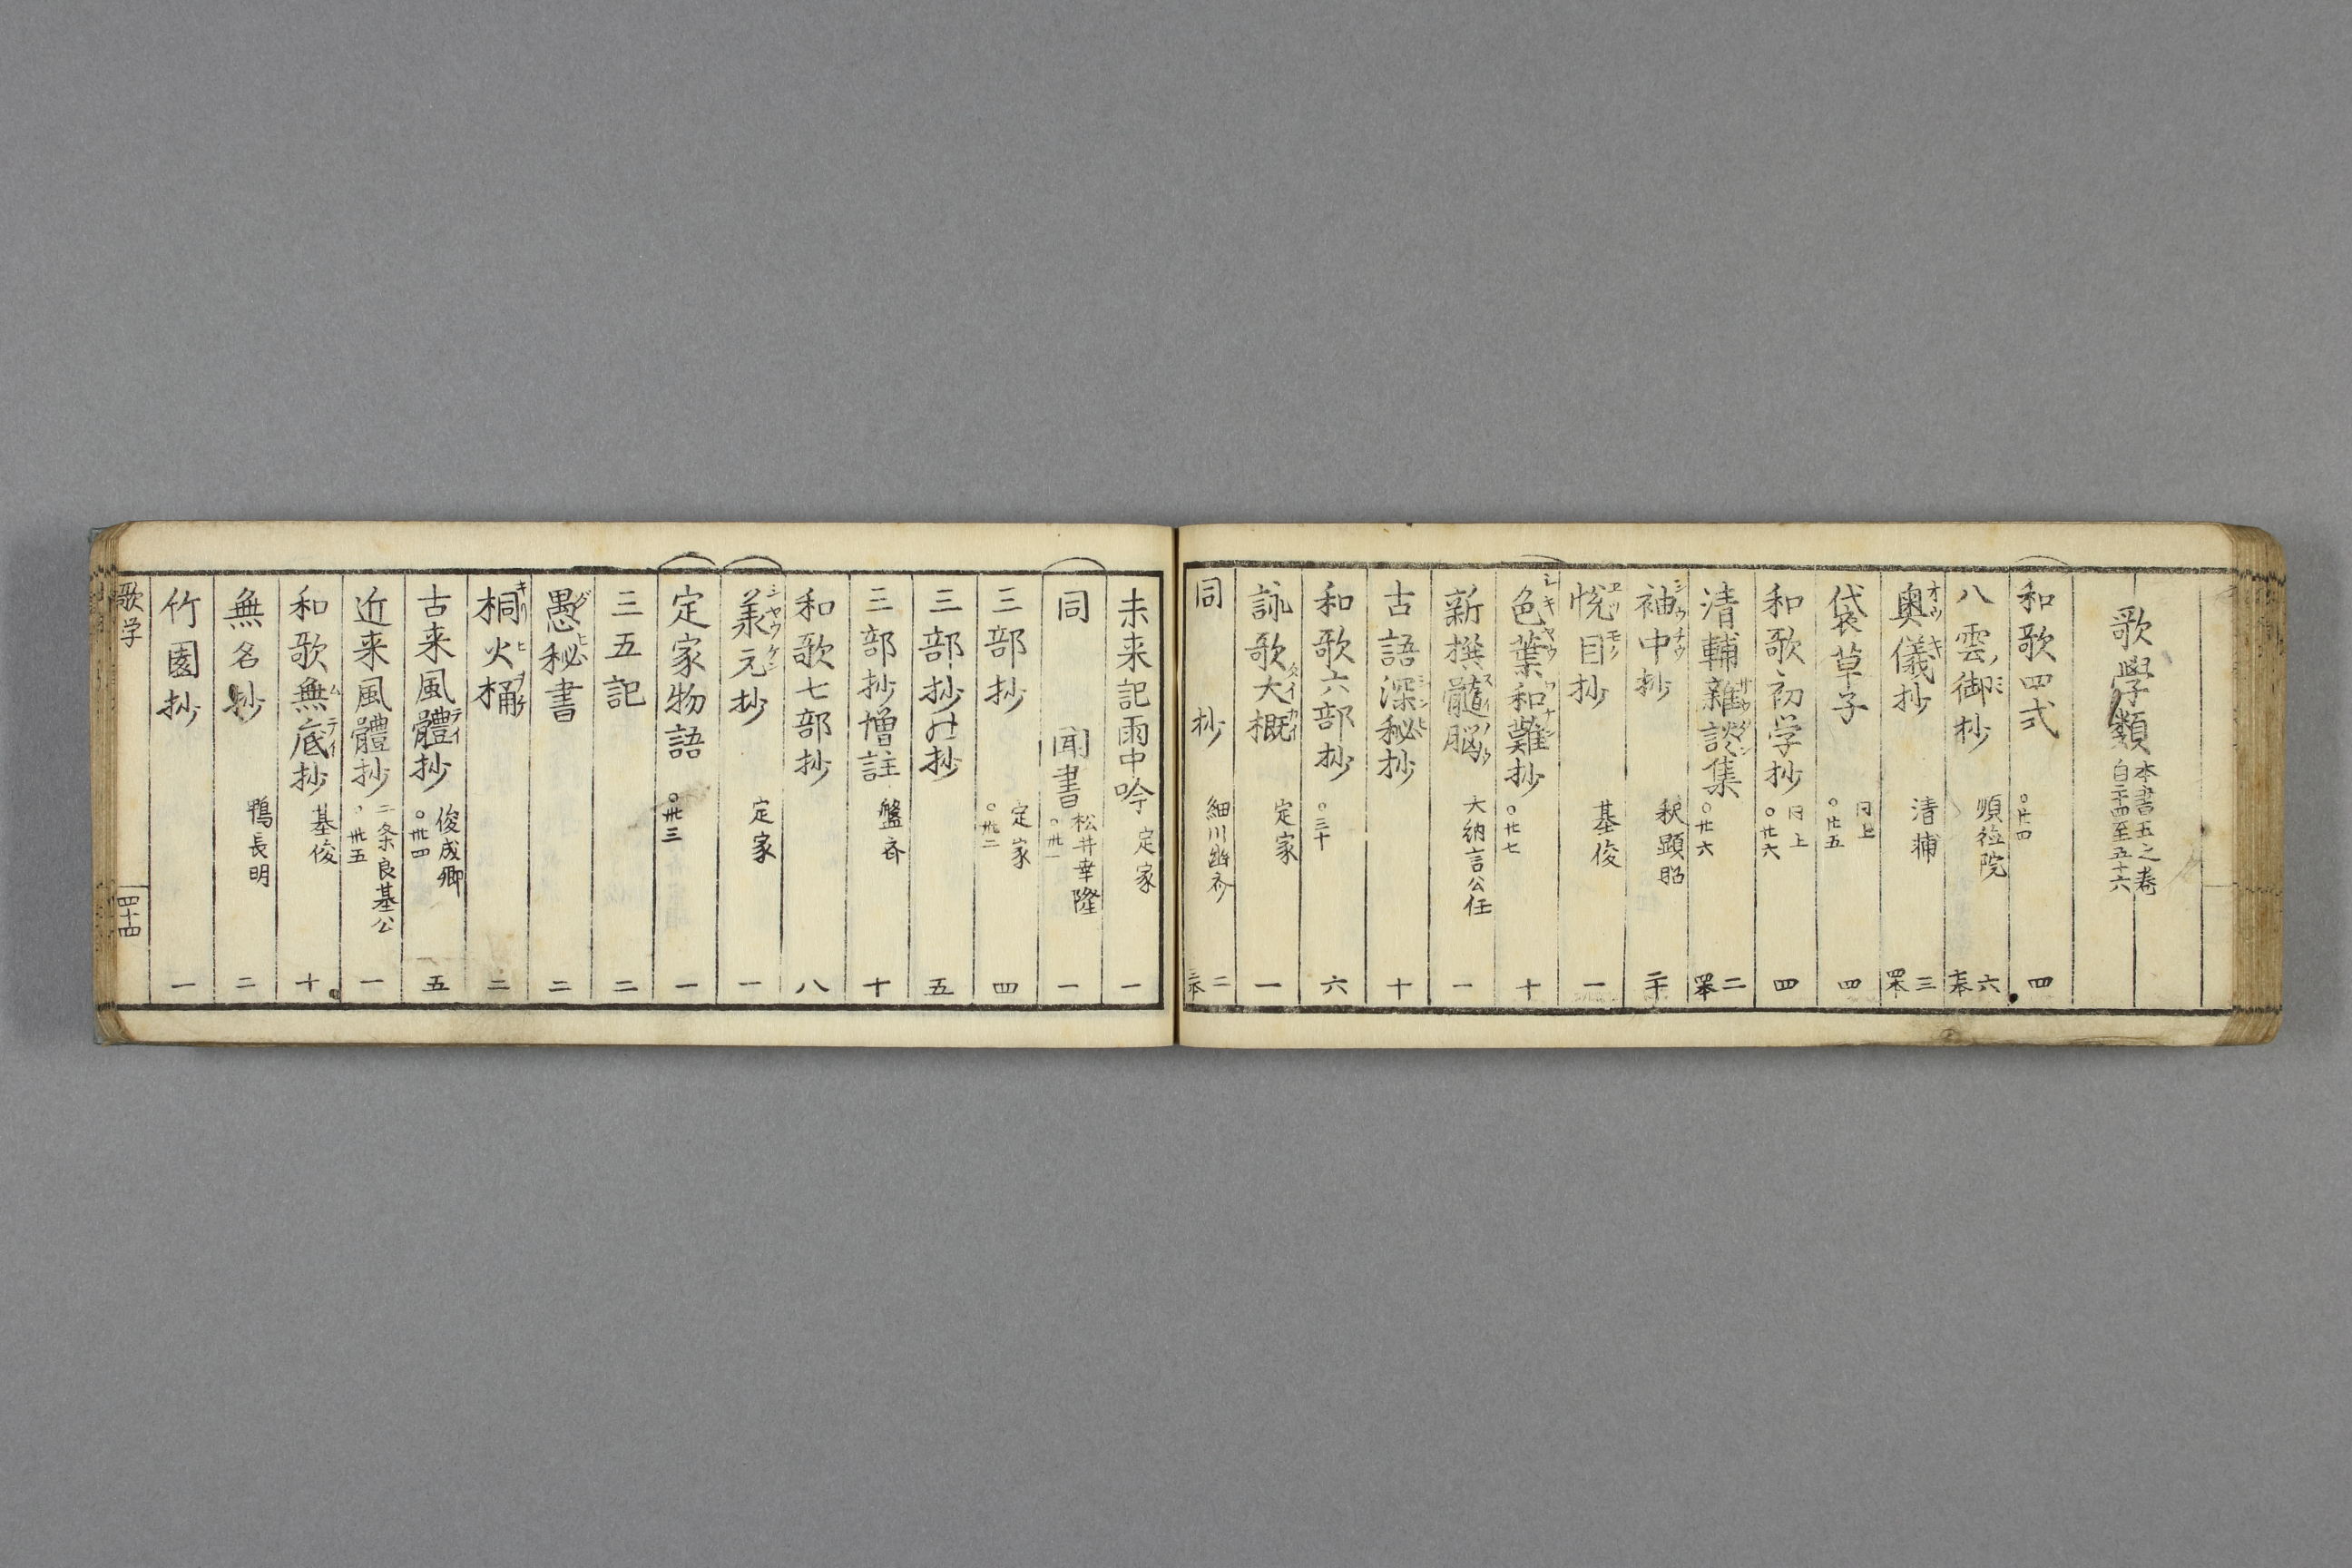 歌學類 本書五之巻
自二十四至五十六
和歌四式 ○廿四 四
八雲御抄 順德院 六 七本
奥儀抄 清輔 三 四本
袋草子 同上 ○廿五 四
和歌初学抄 同上 ○廿六 四
清輔雜談集 ○廿六 二 四本
袖中抄 釈顕昭 二十
悦目抄 基俊 一
色葉和難抄 ○廿七 十
新撰髓脳 大納言公任 一
古語深秘抄 十
和歌六部抄 ○三十 六
詠歌大概 定家 一
同 抄 細川幽斎 二 三本
未来記雨中吟 定家 一
同 聞書 松井幸隆 ○卅一 一
三部抄 定家 ○卅二 四
三部抄の抄 五
三部抄増註 盤斎 十
和歌七部抄 八
美元抄 定家 一
定家物語 ○卅三 一
三五記 二
愚秘書 二
桐火桶 二
古来風體抄 俊成卿 ○卅四 五
近来風體抄 二条良基公 卅五 一
和歌無底抄 基俊 十
無名抄 鴨長明 二
竹園抄 一
歌学 四十四